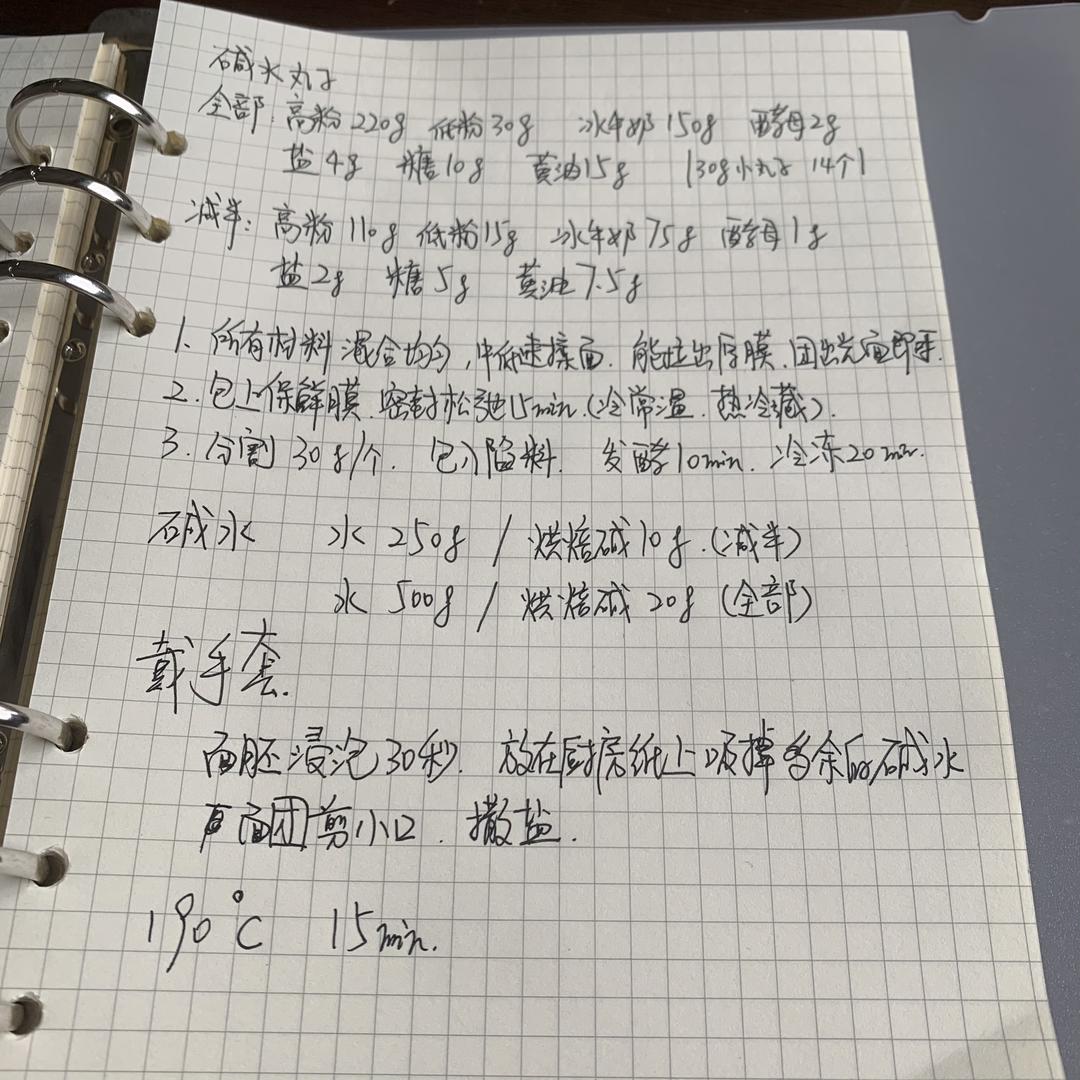 碱水丸子
全部:高粉220g 低粉30g 冰牛奶150g 酵母2g
盐4g 糖10g 黄油15g |30g小丸子 14个|
减半:高粉110g 低粉15g 冰牛奶75g 酵母1g
盐2g 糖5g 黄油7.5g
1. 所有材料混合均匀,中低速揉面.能拉出厚膜.团出光面即可.
2. 包上保鲜膜.密封松弛15min.(冷常温.热冷藏).
3. 分割30g/个. 包入馅料. 发酵10min. 冷冻20min.
碱水 水250g / 烘焙碱10g.(减半)
水500g / 烘焙碱20g (全部)
戴手套.
面胚浸泡30秒. 放在厨房纸上吸掉多余的碱水
面团剪小口. 撒盐.
190℃ 15min.